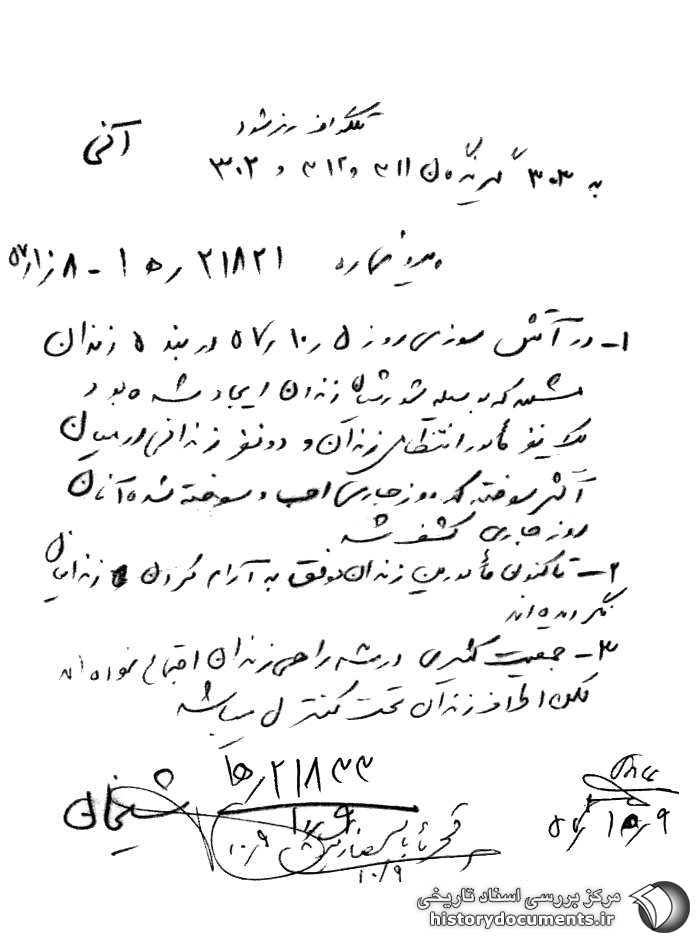 تلگراف رمز شود
آنی
به ۳۰۳ گیرندگان ۳۱۱ و ۳۱۲ و ۳۰۲
پیرو شماره ۲۱۸۲۱ ر ه ۱ - ۸ ر ۱۰ ر ۵۷
۱- در آتش سوزی روز ۵ ر ۱۰ ر ۵۷ در بند ۵ زندان
مشهد که بوسیله شورشیان زندان ایجاد شده بود
یک نفر مأمور انتظامی زندان و دو نفر زندانی در میان
آتش سوخته که روز جاری و سوخته شده آنان
روز جاری کشف شد
۲- تاکنون مأمورین زندان موفق به آرام کردن زندانیان
نگردیده‌اند
۳- جمعیت کثیری در سه راهی زندان اجتماع نموده‌اند
لکن اطراف زندان تحت کنترل میباشد
۲۱۸۴۴ ر ه ۱
شیخان
۱۰/۹
۱۰/۹
۵۷ ر ۱۰ ر ۹
مرکز بررسی اسناد تاریخی
historydocuments.ir